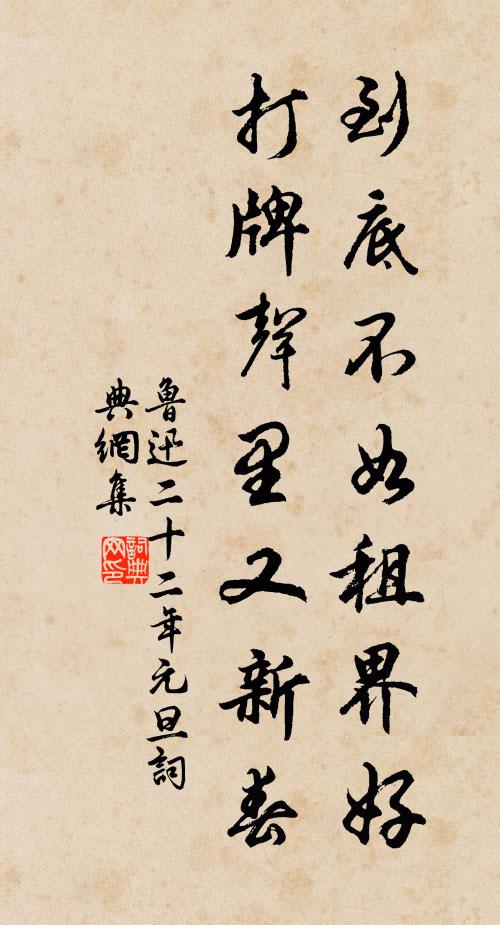 到底不如租界好
打牌聲里又新春
魯迅二十二年元旦詞
典網集
詞典
网印